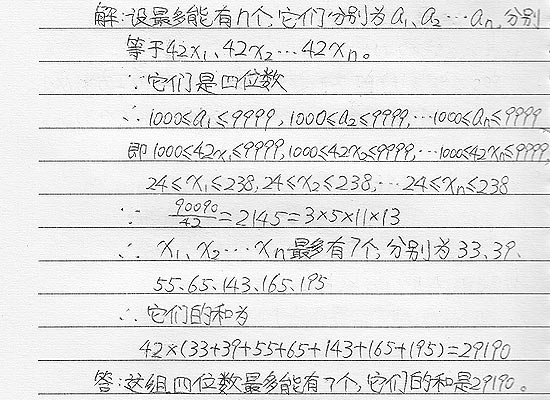 解:设最多能有n个,它们分别为a₁、a₂…an,分别
等于42x₁、42x₂…42xn。
∵它们是四位数
∴ 1000≤a₁≤9999,1000≤a₂≤9999,…1000≤an≤9999
即 1000≤42x₁≤9999,1000≤42x₂≤9999,…1000≤42xn≤9999,
24≤x₁≤238,24≤x₂≤238,…24≤xn≤238
∵ 90090/42=2145=3×5×11×13
∴ x₁、x₂…xn最多有7个,分别为33、39、
55、65、143、165、195
∴它们的和为
42×(33+39+55+65+143+165+195)=29190
答:这组四位数最多能有7个,它们的和是29190。